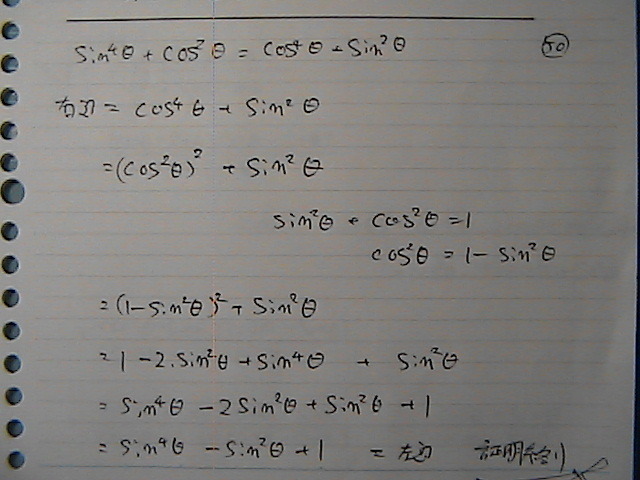 sin⁴θ + cos²θ = cos⁴θ + sin²θ 50
右辺 = cos⁴θ + sin²θ
=(cos²θ)² + sin²θ
sin²θ + cos²θ = 1
cos²θ = 1 - sin²θ
= (1-sin²θ)² + sin²θ
= 1 - 2.sin²θ + sin⁴θ + sin²θ
= sin⁴θ - 2sin²θ + sin²θ + 1
= sin⁴θ - sin²θ + 1 = 左辺 証明終り